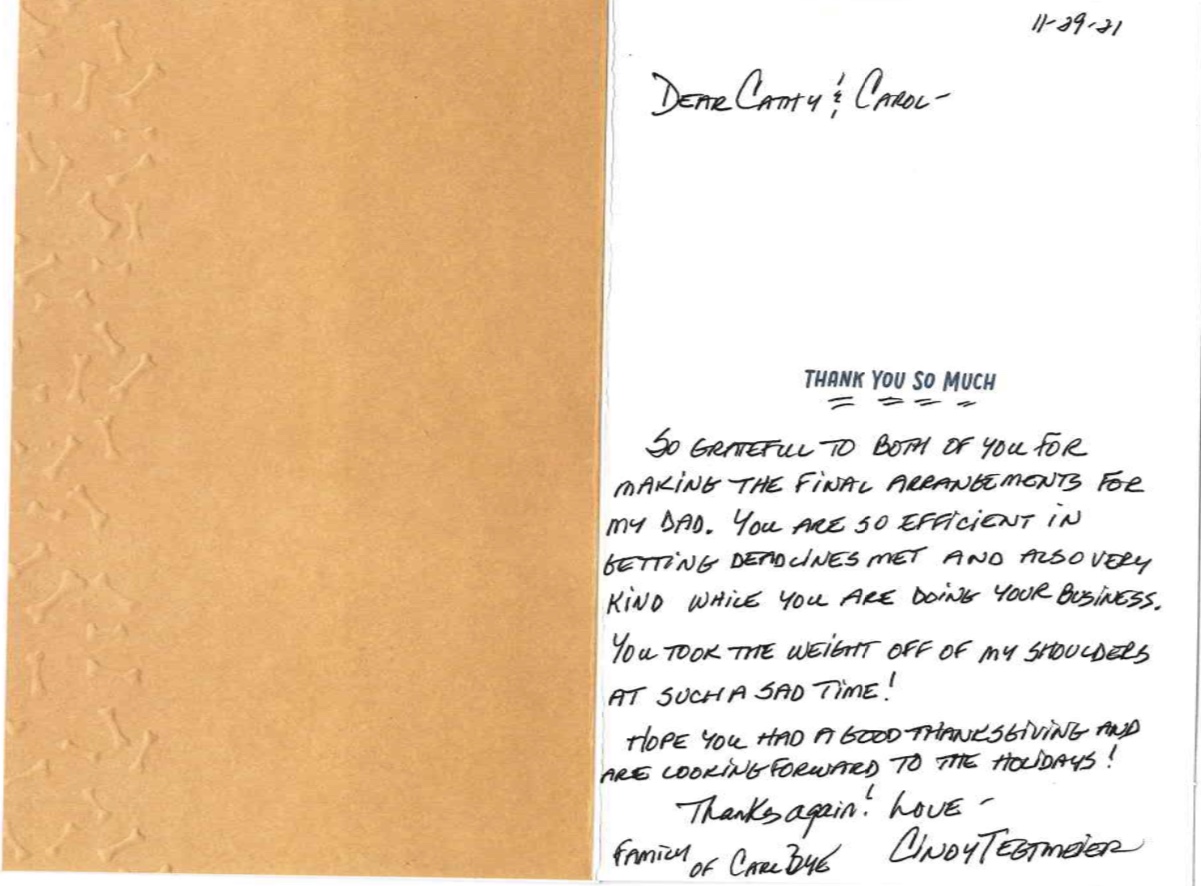 11-29-21
DEAR CATHY & CAROL-
THANK YOU SO MUCH
SO GRATEFUL TO BOTH OF YOU FOR
MAKING THE FINAL ARRANGEMENTS FOR
MY DAD. YOU ARE SO EFFICIENT IN
GETTING DEADLINES MET AND ALSO VERY
KIND WHILE YOU ARE DOING YOUR BUSINESS.
YOU TOOK THE WEIGHT OFF OF MY SHOULDERS
AT SUCH A SAD TIME!
HOPE YOU HAD A GOOD THANKSGIVING AND
ARE LOOKING FORWARD TO THE HOLIDAYS!
Thanks again! LOVE -
FAMILY OF CARL BYE CINDY TEGTMEIER